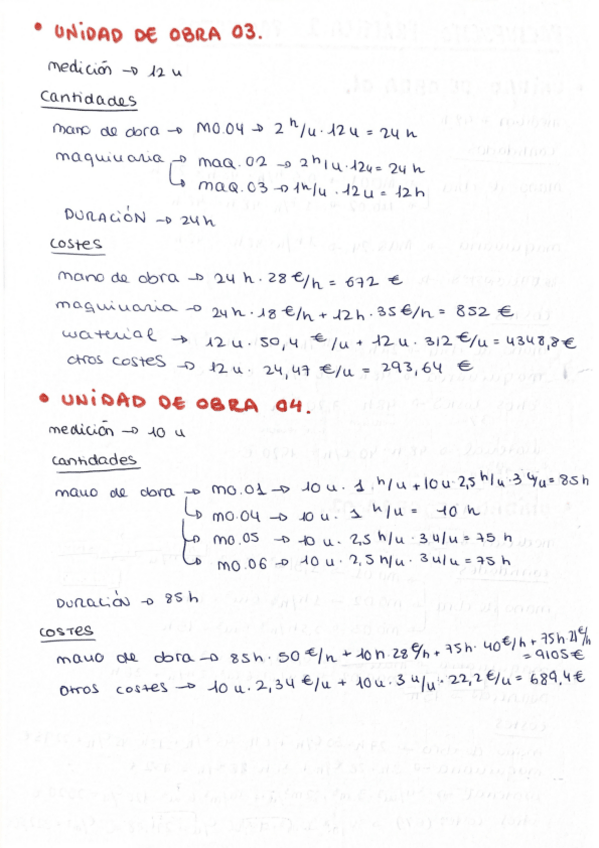 • UNIDAD DE OBRA 03.
medición → 12 u
Cantidades
mano de obra → MO.04 → 2 h/u · 12 u = 24 h
maquinaria → maq. 02 → 2 h/u · 12u = 24 h
↳ maq. 03 → 1h/u · 12 u = 12h
DURACIÓN → 24h
Costes
mano de obra → 24 h · 28 €/h = 672 €
maquinaria → 24h · 18 €/h + 12 h · 35 €/h = 852 €
material → 12 u · 50,4 €/u + 12 u · 312 €/u = 4348,8€
otros costes → 12 u · 24,47 €/u = 293,64 €
• UNIDAD DE OBRA 04.
medición → 10 u
cantidades
mano de obra → MO.01 → 10 u · 1 h/u + 10 u · 2,5 h/u · 3 u/u = 85 h
↳ MO.04 → 10 u · 1 h/u = 10 h
↳ MO.05 → 10 u · 2,5 h/u · 3 u/u = 75 h
↳ MO.06 → 10 u · 2,5 h/u · 3 u/u = 75 h
DURACIÓN → 85 h
COSTES
mano de obra → 85h · 50 €/h + 10h · 28 €/h + 75h · 40 €/h + 75h · 21 €/h
= 9105 €
otros costes → 10 u · 2,34 €/u + 10 u · 3 u/u · 22,2 €/u = 689,4 €